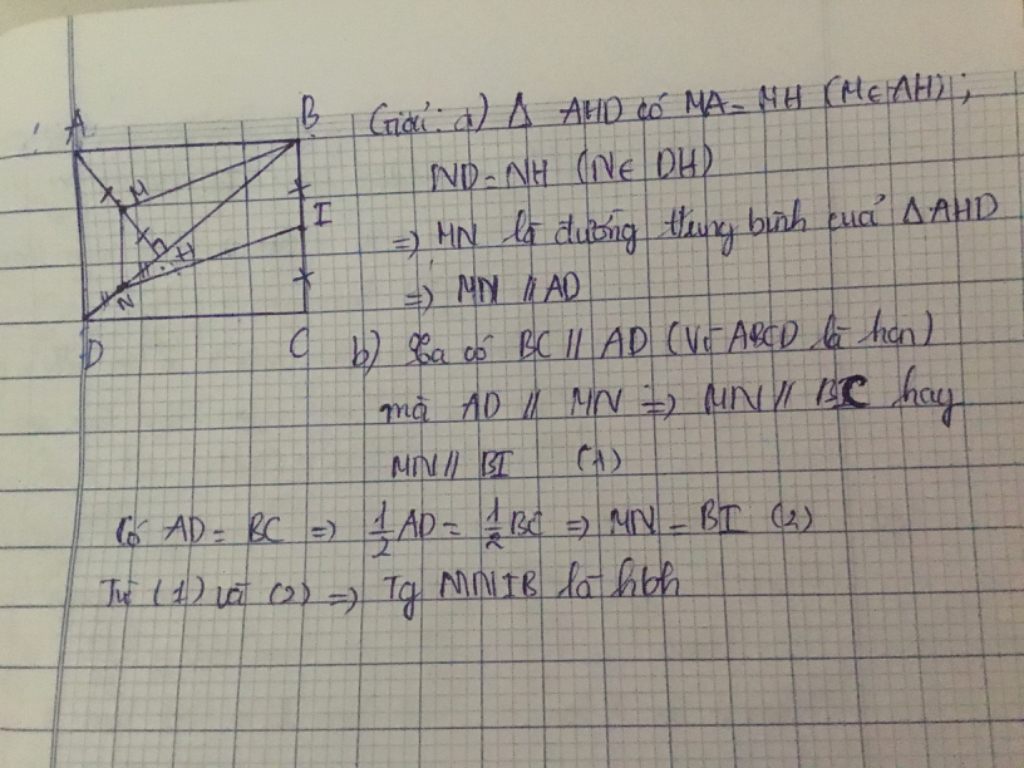 A
B
M
I
H
N
D
C
Giải: a) Δ AHD có MA = MH (M ∈ AH);
ND = NH (N ∈ DH)
=> MN là đường trung bình cuả Δ AHD
=> MN // AD
b) Ta có BC // AD (Vì ABCD là hcn)
mà AD // MN => MN // BC hay
MN // BI (1)
Có AD = BC => 1/2 AD = 1/2 BC => MN = BI (2)
Từ (1) và (2) => Tg MNIB là hbh